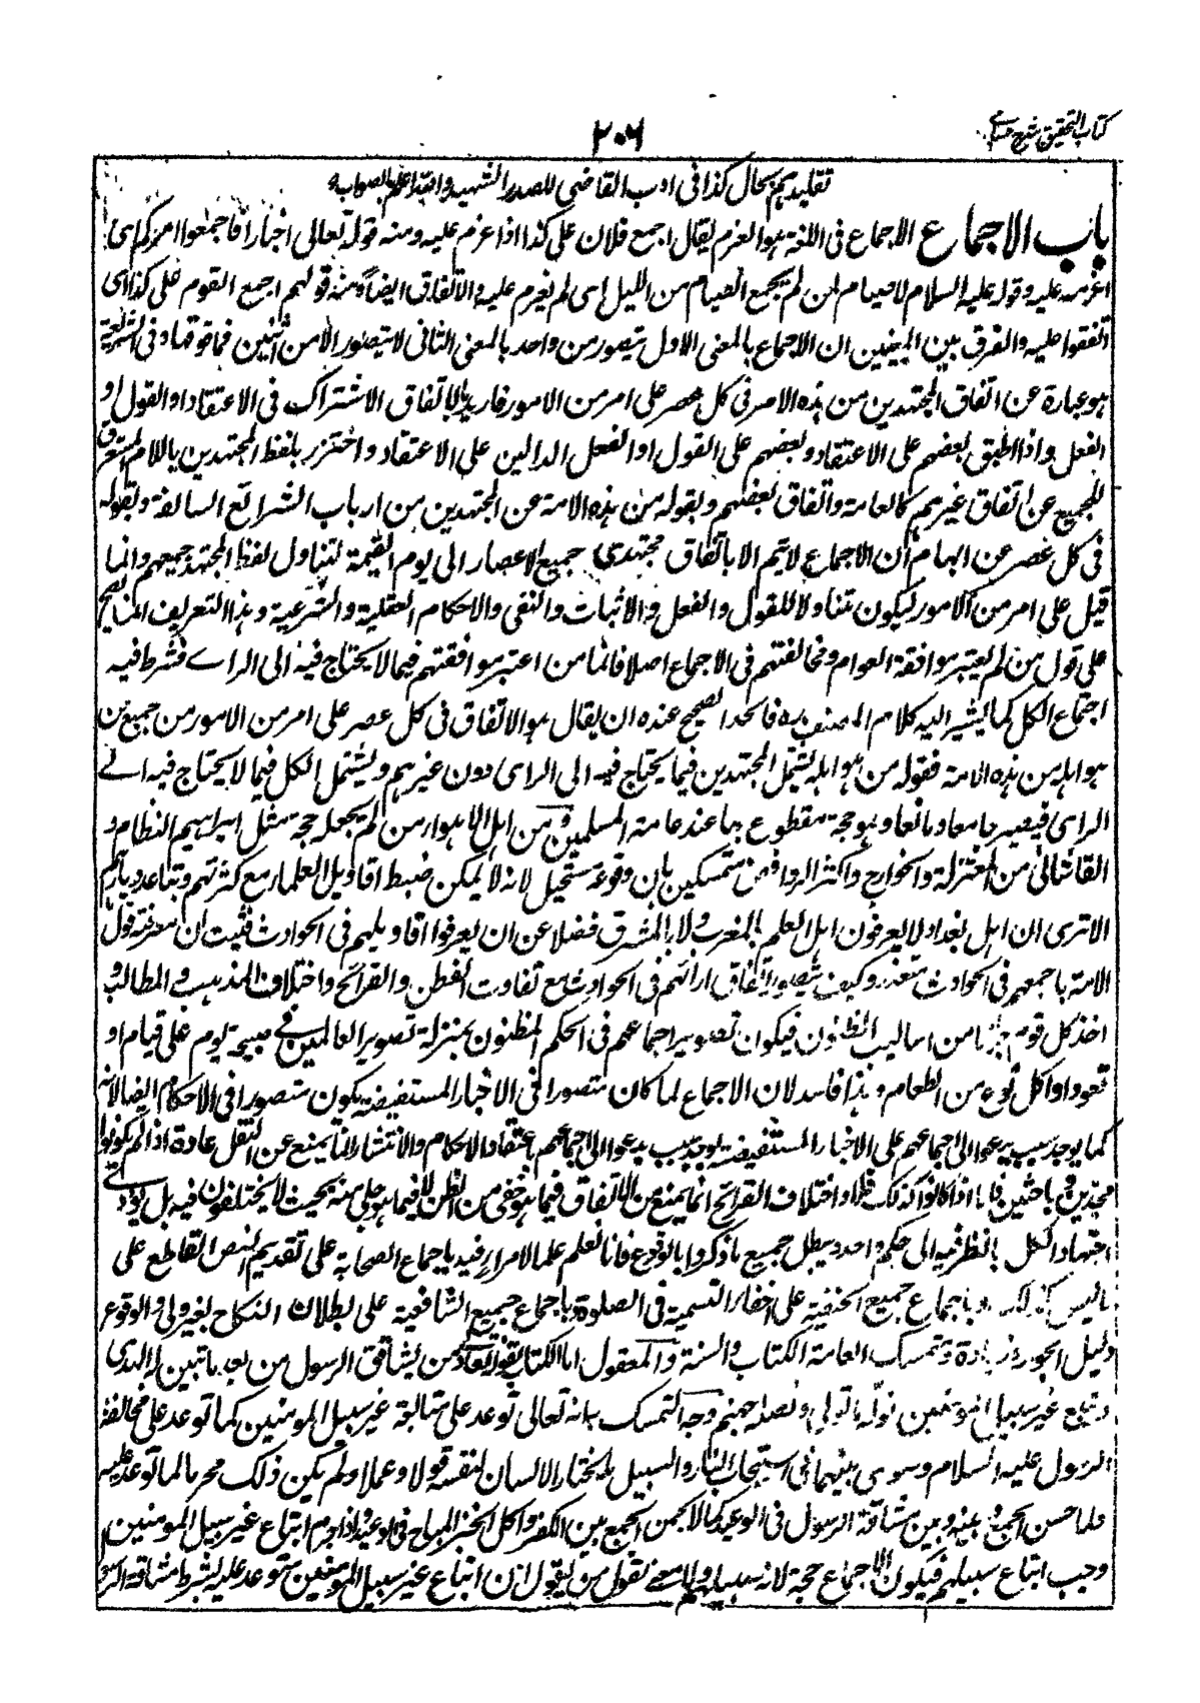 كتاب التحقيق شرح حسامى
٢٠٦
تقليدهم بحال كذا فى ادب القاضى للصدر الشهيد والله اعلم بالصواب
باب الاجماع الاجماع فى اللغة هو العزم يقال اجمع فلان على كذا اذا عزم عليه ومنه قوله تعالى اخبارا فاجمعوا امركم اى
اعزموا عليه وقوله عليه السلام لا صيام لمن لم يجمع الصيام من الليل اى لم يعزم عليه والاتفاق ايضا ومنه قولهم اجمع القوم على كذا اى
اتفقوا عليه والفرق بين المعنيين ان الاجماع بالمعنى الاول يتصور من واحد بالمعنى الثانى لا يتصور الا من اثنين فما فوقهما وفى الشريعة
هو عبارة عن اتفاق المجتهدين من هذه الامة فى كل عصر على امر من الامور فاريد بالاتفاق الاشتراك فى الاعتقاد او القول او
الفعل واذا اطبق بعضهم على الاعتقاد وبعضهم على القول او الفعل الدالين على الاعتقاد واحترز بلفظ المجتهدين باللام المستغرق
للجميع عن اتفاق غيرهم كالعامة واتفاق بعضهم وبقوله من هذه الامة عن المجتهدين من ارباب الشرائع السالفة وبقوله
فى كل عصر عن ايهام ان الاجماع لا يتم الا باتفاق مجتهدى جميع الاعصار الى يوم القيمة لتناول لفظ المجتهد جميعهم وانما
قيل على امر من الامور ليكون متناولا للقول والفعل والاثبات والنفى والاحكام العقلية والشرعية وهذا التعريف انما يصح
على قول من لم يعتبر موافقة العوام ومخالفتهم فى الاجماع اصلا فاما من اعتبر موافقتهم فيما لا يحتاج فيه الى الراے فشرط فيه
اجتماع الكل كما يشير اليه كلام المصنف ره فالحد الصحيح عنده ان يقال هو الاتفاق فى كل عصر على امر من الامور من جميع من
هو اهله من هذه الامة فقوله من هو اهله يشمل المجتهدين فيما يحتاج فيه الى الراى دون غيرهم ويشتمل الكل فيما لا يحتاج فيه الے
الراى فيصير جامعا ومانعا وهو حجة مقطوع بها عند عامة المسلمين ومن اهل الاهواء من لم يجعله حجة مثل ابراهيم النظام و
القاشانى من المعتزلة والخوارج واكثر الروافض متمسكين بان وقوعه مستحيل لانه لا يمكن ضبط اقاويل العلماء مع كثرتهم وتباعد ديارهم
الا ترى ان اهل بغداد لا يعرفون اهل العلم بالمغرب ولا بالمشرق فضلا عن ان يعرفوا اقاويلهم فى الحوادث فثبت ان معرفة قول
الامة باجمعهم فى الحوادث متعذر وكيف يتصور اتفاق ارائهم فى الحوادث مع تفاوت الفطن والقرائح واختلاف المذاهب والمطالب و
اخذ كل قوم جزءا من اساليب الظنون فيكون تصوير اجماعهم فى الحكم المظنون بمنزلة تصوير العالمين فى صبيحة يوم على قيام او
قعود او اكل نوع من الطعام وهذا فاسد لان الاجماع لما كان متصورا فى الاخبار المستفيضة يكون متصورا فى الاحكام ايضا لانه
كما يوجد سبب يدعو الى اجماعهم على الاخبار المستفيضة يوجد سبب يدعو الى اجماعهم باعتقاد الاحكام والانتشار انما يمنع عن النقل عادة اذا لم يكونوا
مجدين وباحثين فاما اذا كانوا كذلك فلا واختلاف القرائح انما يمنع من الاتفاق فيما هو خفى من الظن لا فيما هو جلى منه بحيث لا يختلفون فيه بل يؤدى
اجتهاد الكل بالنظر فيه الى حكم واحد ويبطل جميع ما ذكروا بالوقوع فانا نعلم علما لا مراء فيه باجماع الصحابة على تقديم النص القاطع على
ما ليس كذلك وباجماع جميع الحنفية على اخفاء التسمية فى الصلوة وباجماع جميع الشافعية على بطلان النكاح بغير ولى والوقوع
دليل الجواز وزيادة وتمسك العامة الكتاب والسنة والمعقول اما الكتاب فقوله تعالى ومن يشاقق الرسول من بعد ما تبين له الهدى
ويتبع غير سبيل المؤمنين نوله ما تولى ونصله جهنم وجه التمسك بانه تعالى توعد على متابعة غير سبيل المومنين كما توعد على مخالفة
الرسول عليه السلام وسوى بينهما فى استيجاب النار والسبيل ما يختار الانسان لنفسه قولا وعملا ولو لم يكن ذلك محرما لما توعد عليه
ولما حسن الجمع بينه وبين مشاقة الرسول فى الوعيد كما لا يحسن الجمع بين الكفر واكل الخبز المباح فى الوعيد واذا حرم اتباع غير سبيل المومنين
وجب اتباع سبيلهم فيكون الاجماع حجة لانه سبيلهم ولا معنى لقول من يقول ان اتباع غير سبيل المومنين متوعد عليه بشرط مشاقة الرسول